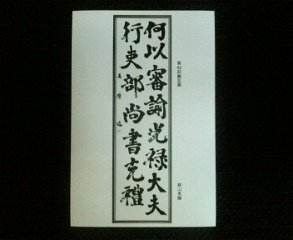 第42回創玄展
何以審諭光禄大夫
行吏部尚書充禮